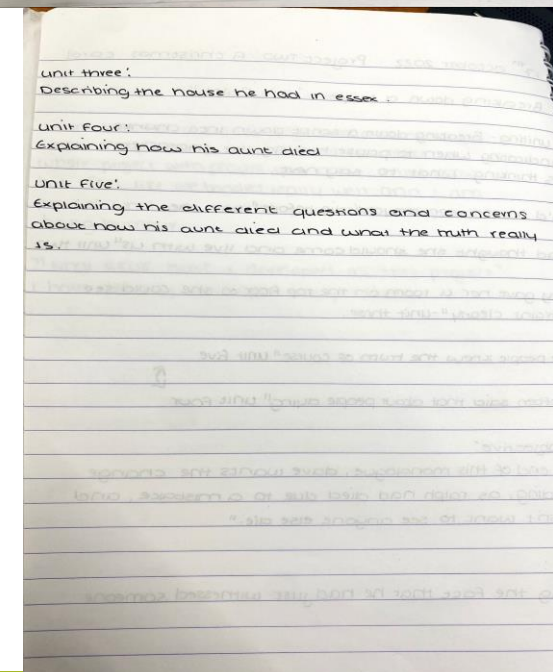 unit three:
Describing the house he had in essex.
unit four:
Explaining how his aunt died
unit five:
Explaining the different questions and concerns
about how his aunt died and what the truth really
is.